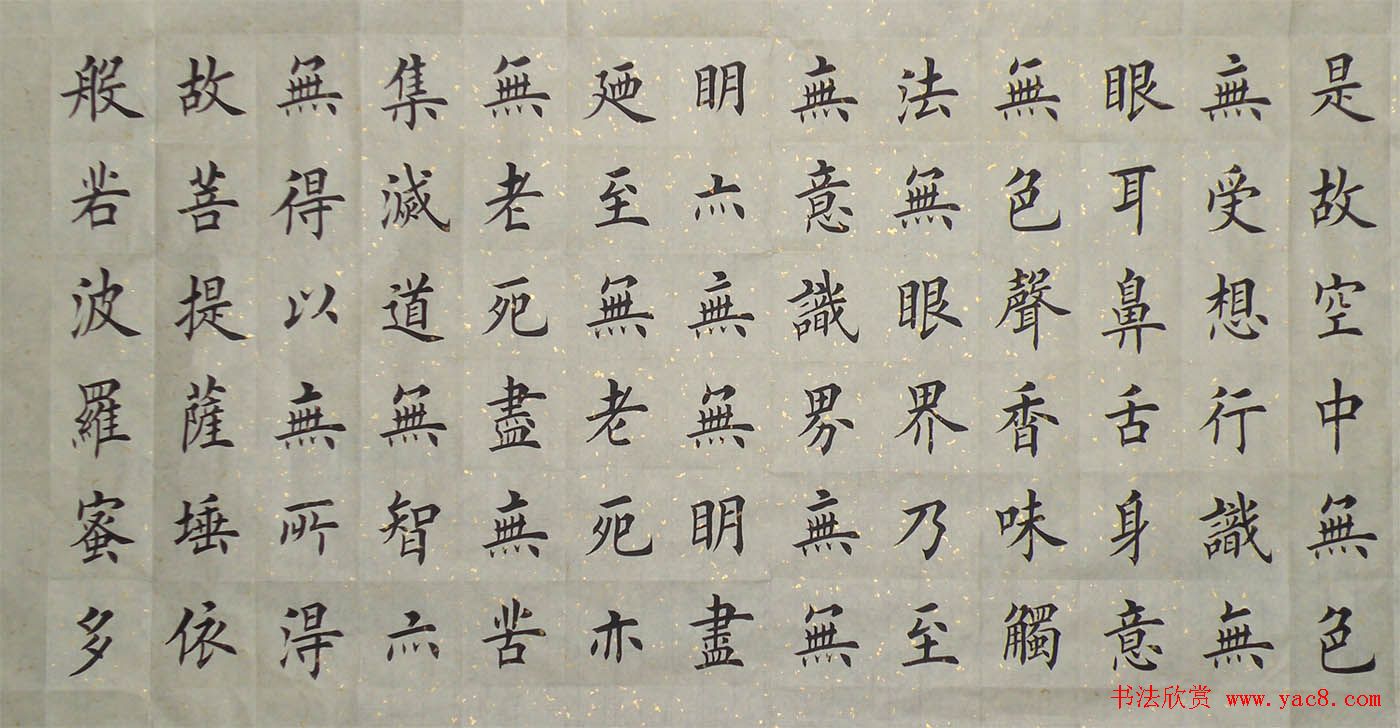 是故空中無色
無受想行識無
眼耳鼻舌身意
無色聲香味觸
法無眼界乃至
無意識界無無
明亦無無明盡
廼至無老死亦
無老死盡無苦
集滅道無智亦
無得以無所得
故菩提薩埵依
般若波羅蜜多
书法欣赏 www.yac8.com